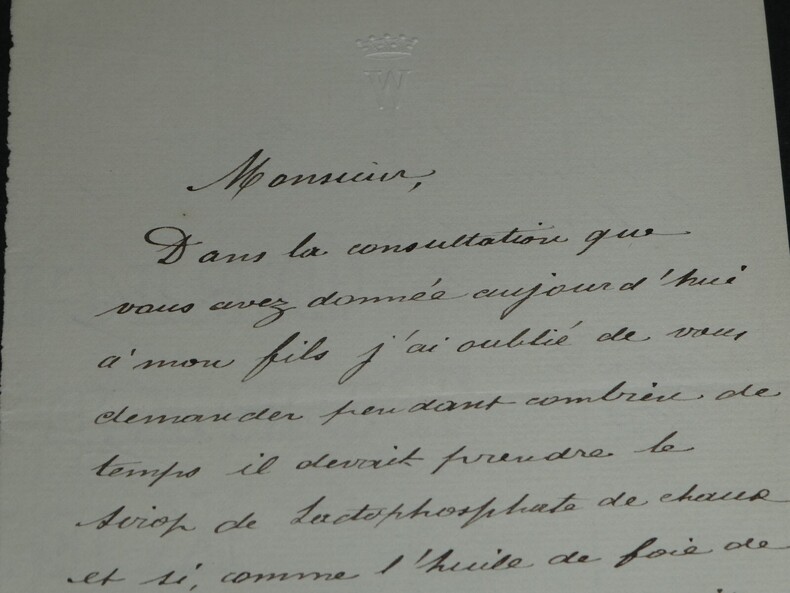 W
Monsieur,
Dans la consultation que
vous avez donnée aujourd'hui
à mon fils j'ai oublié de vous
demander pendant combien de
temps il devait prendre le
sirop de Lactophosphate de chaux
et si, comme l'huile de foie de